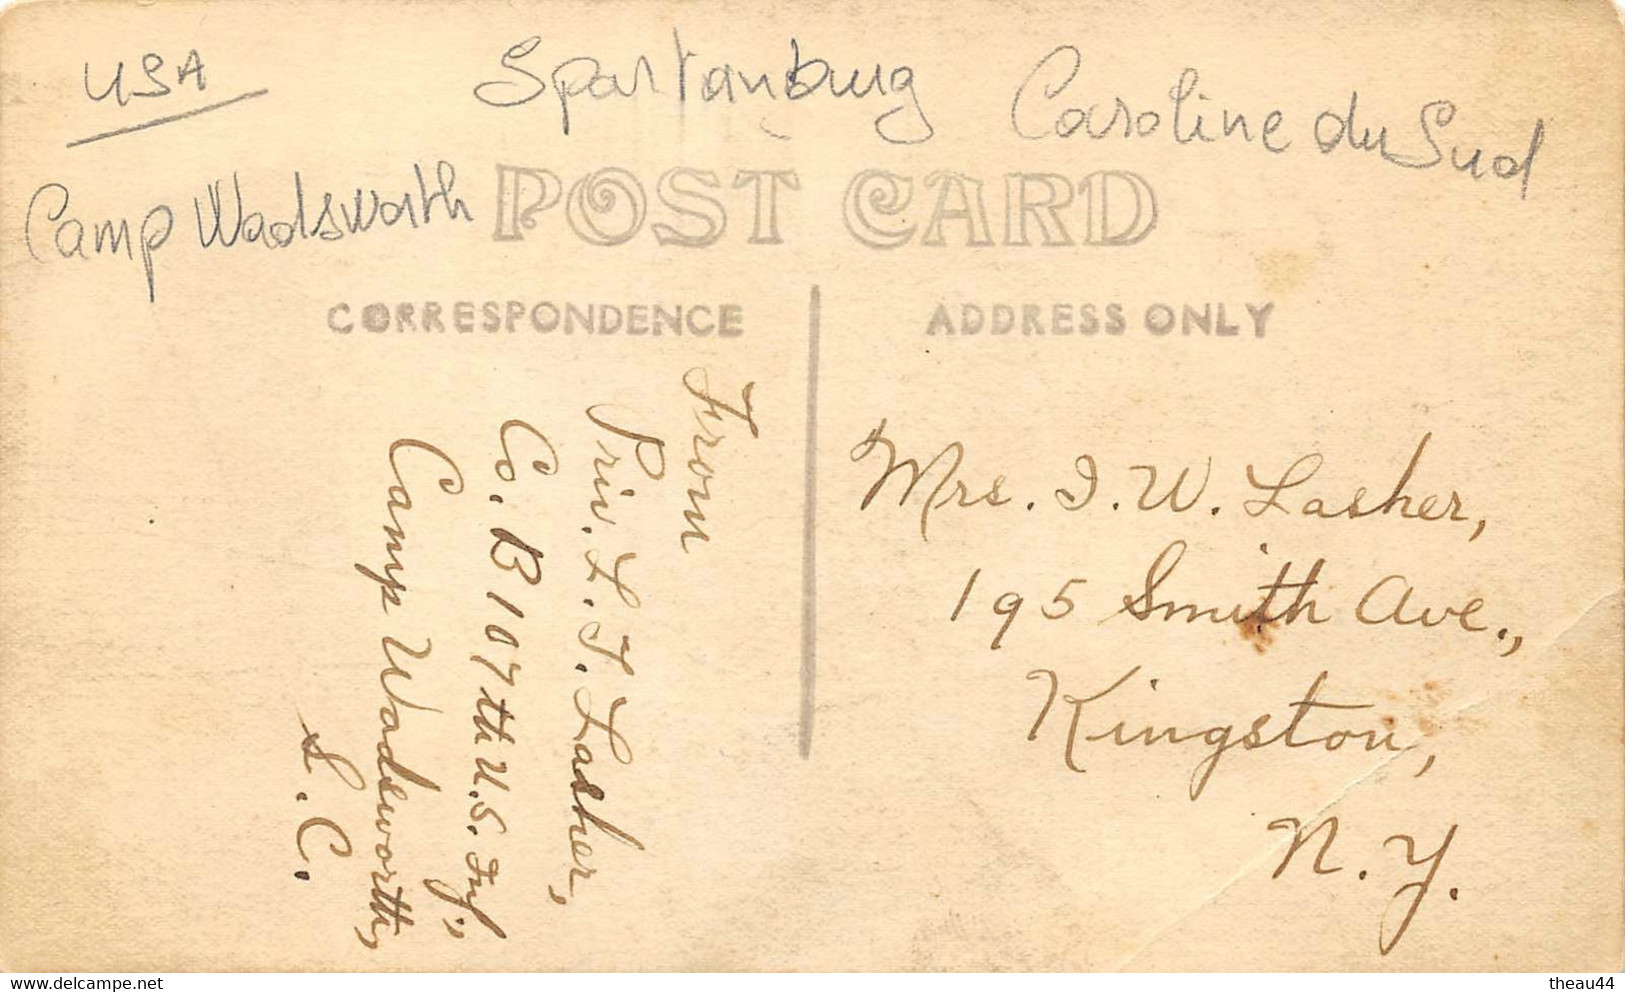 USA
Spartanburg Caroline du Sud
Camp Wadsworth
POST CARD
CORRESPONDENCE
ADDRESS ONLY
From
Priv. L. T. Lasher,
Co. B 107th U.S. Inf.,
Camp Wadsworth,
S. C.
Mrs. I. W. Lasher,
195 Smith Ave.,
Kingston,
N. Y.
delcampe.net
theau44